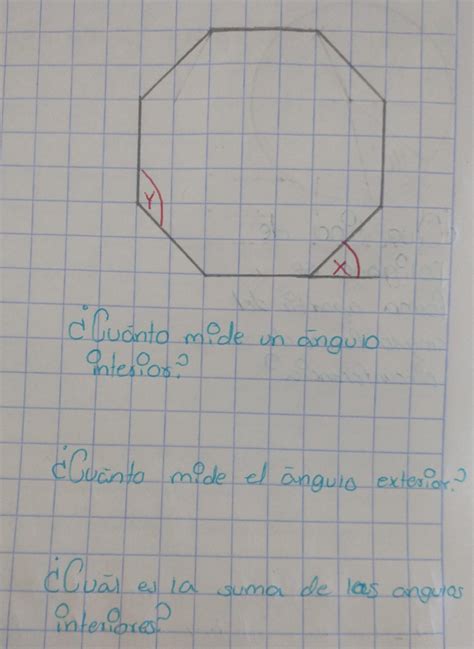 Y
X
¿Cuánto mide un ángulo
interior?
¿Cuánto mide el ángulo exterior?
¿Cuál es la suma de los angulos
interiores?